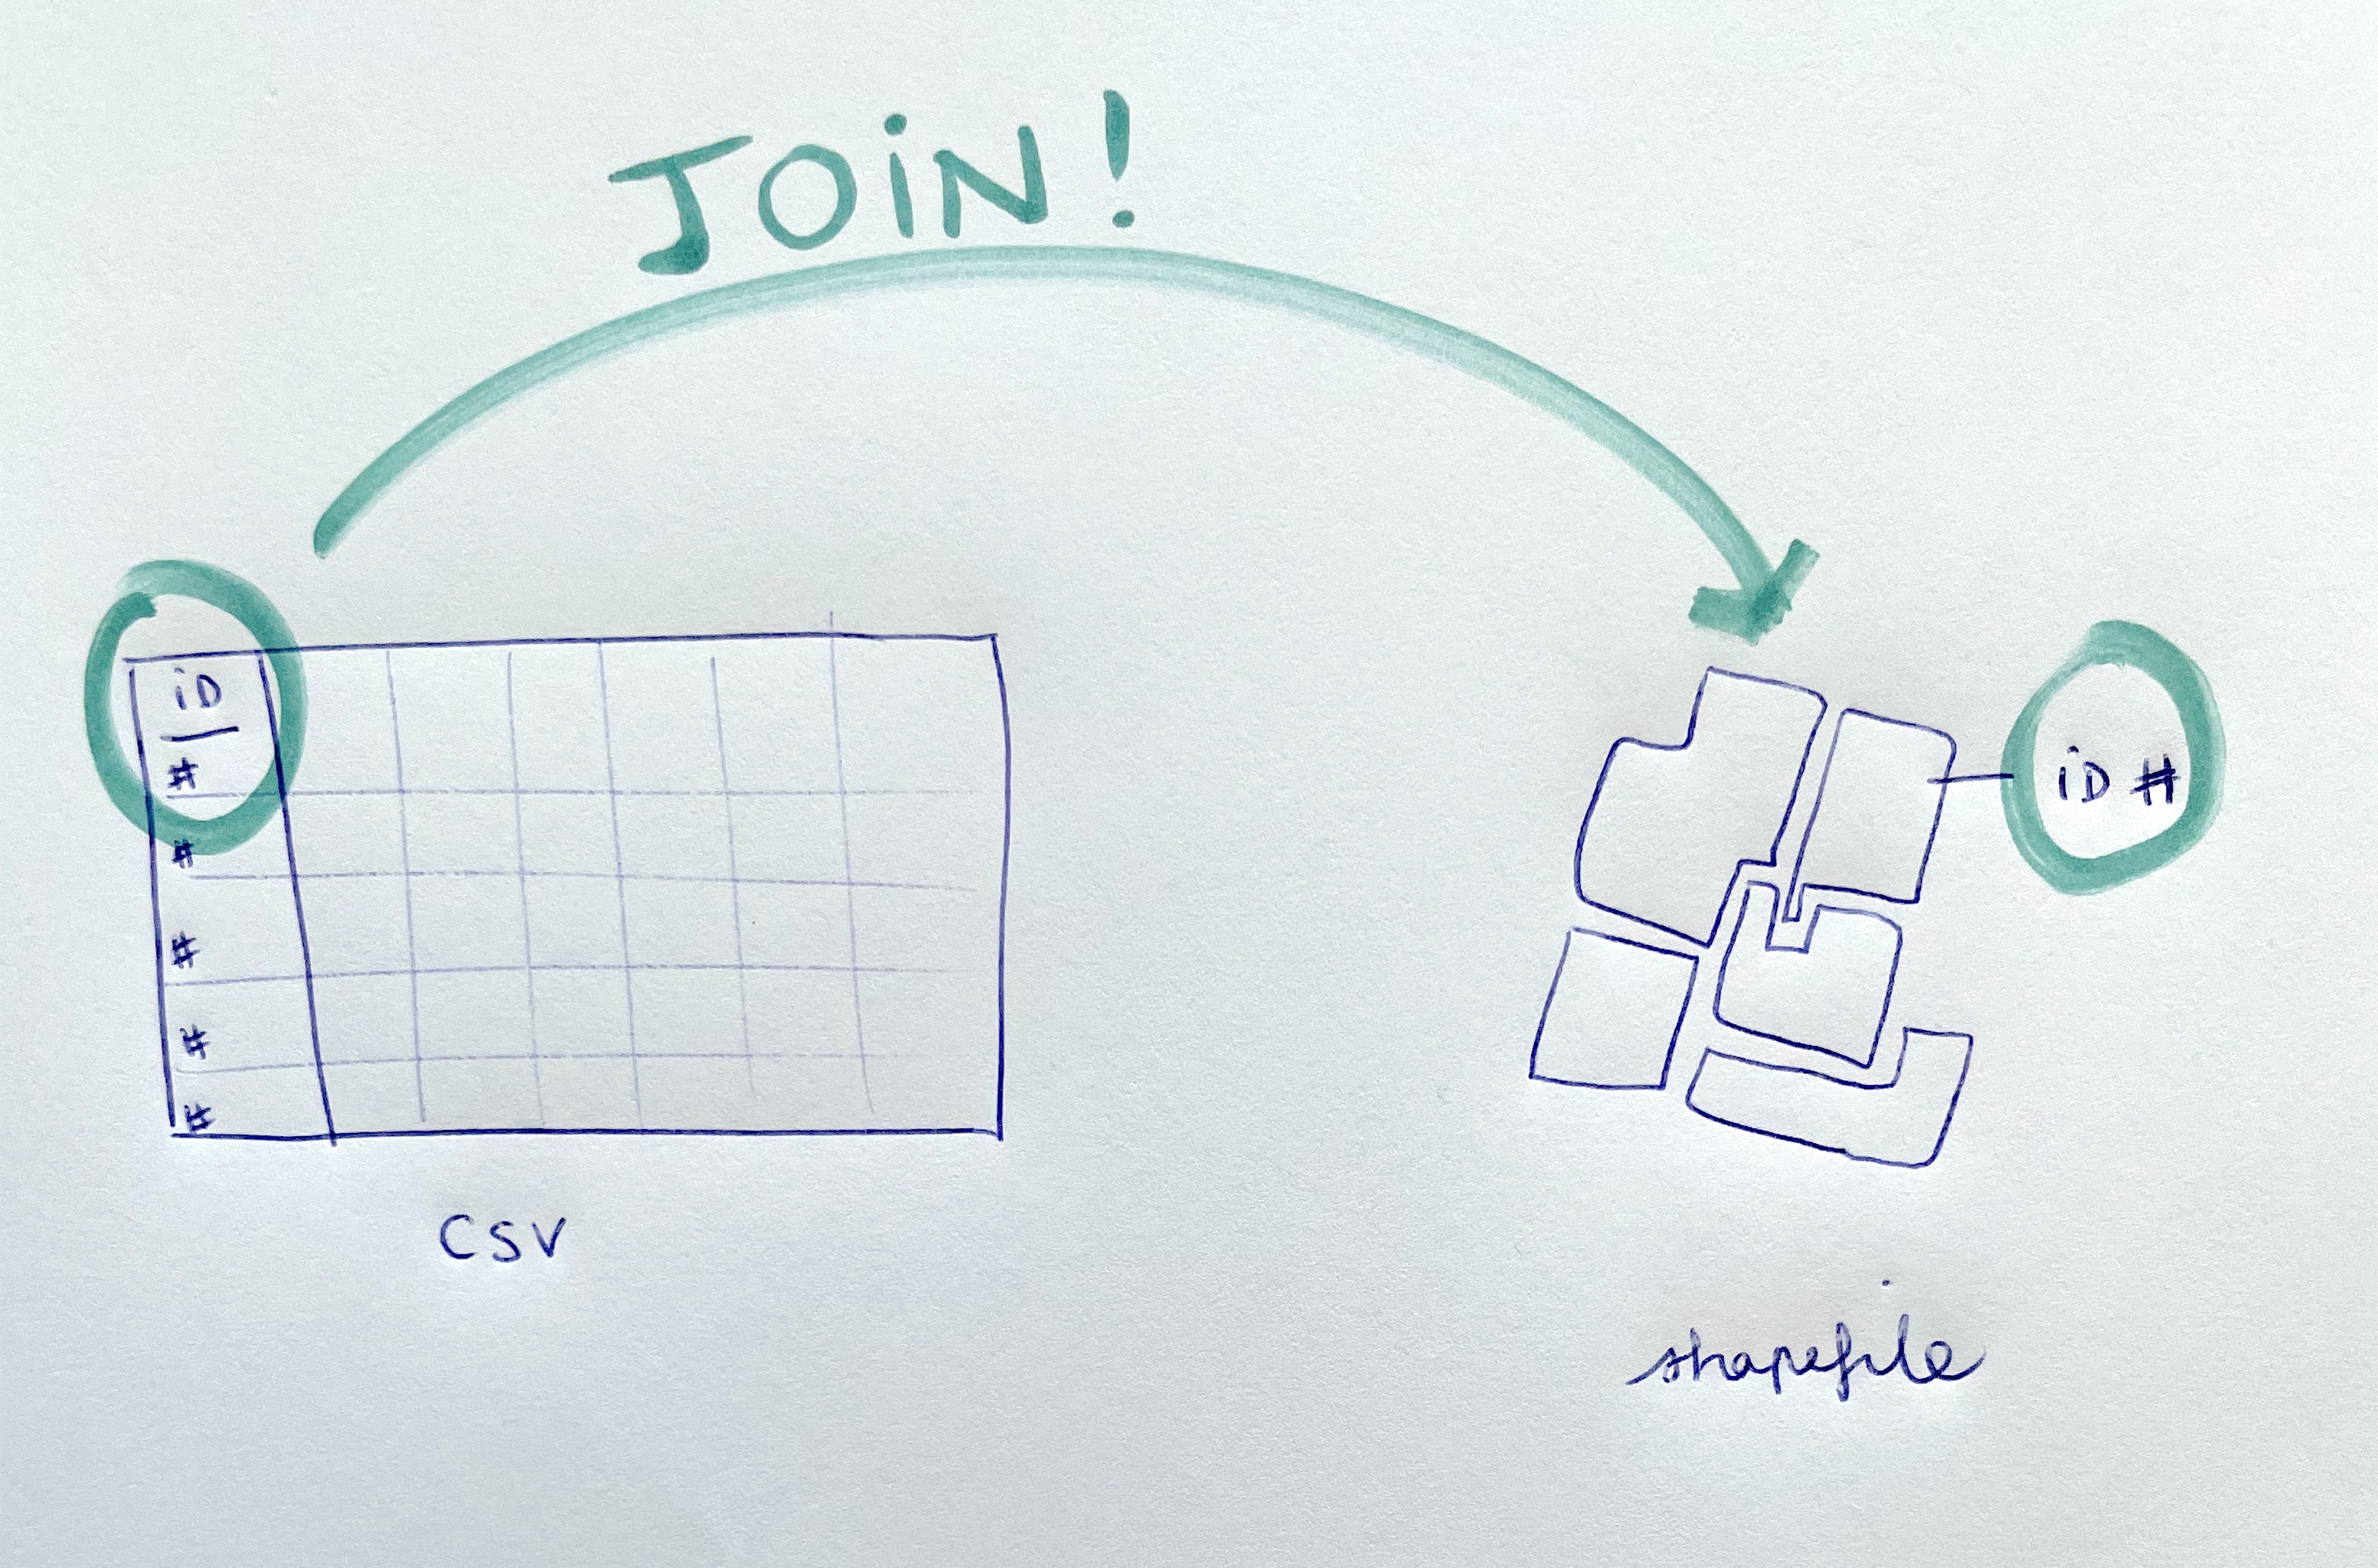 JOIN!
iD
#
#
#
#
#
iD #
CSV
shapefile